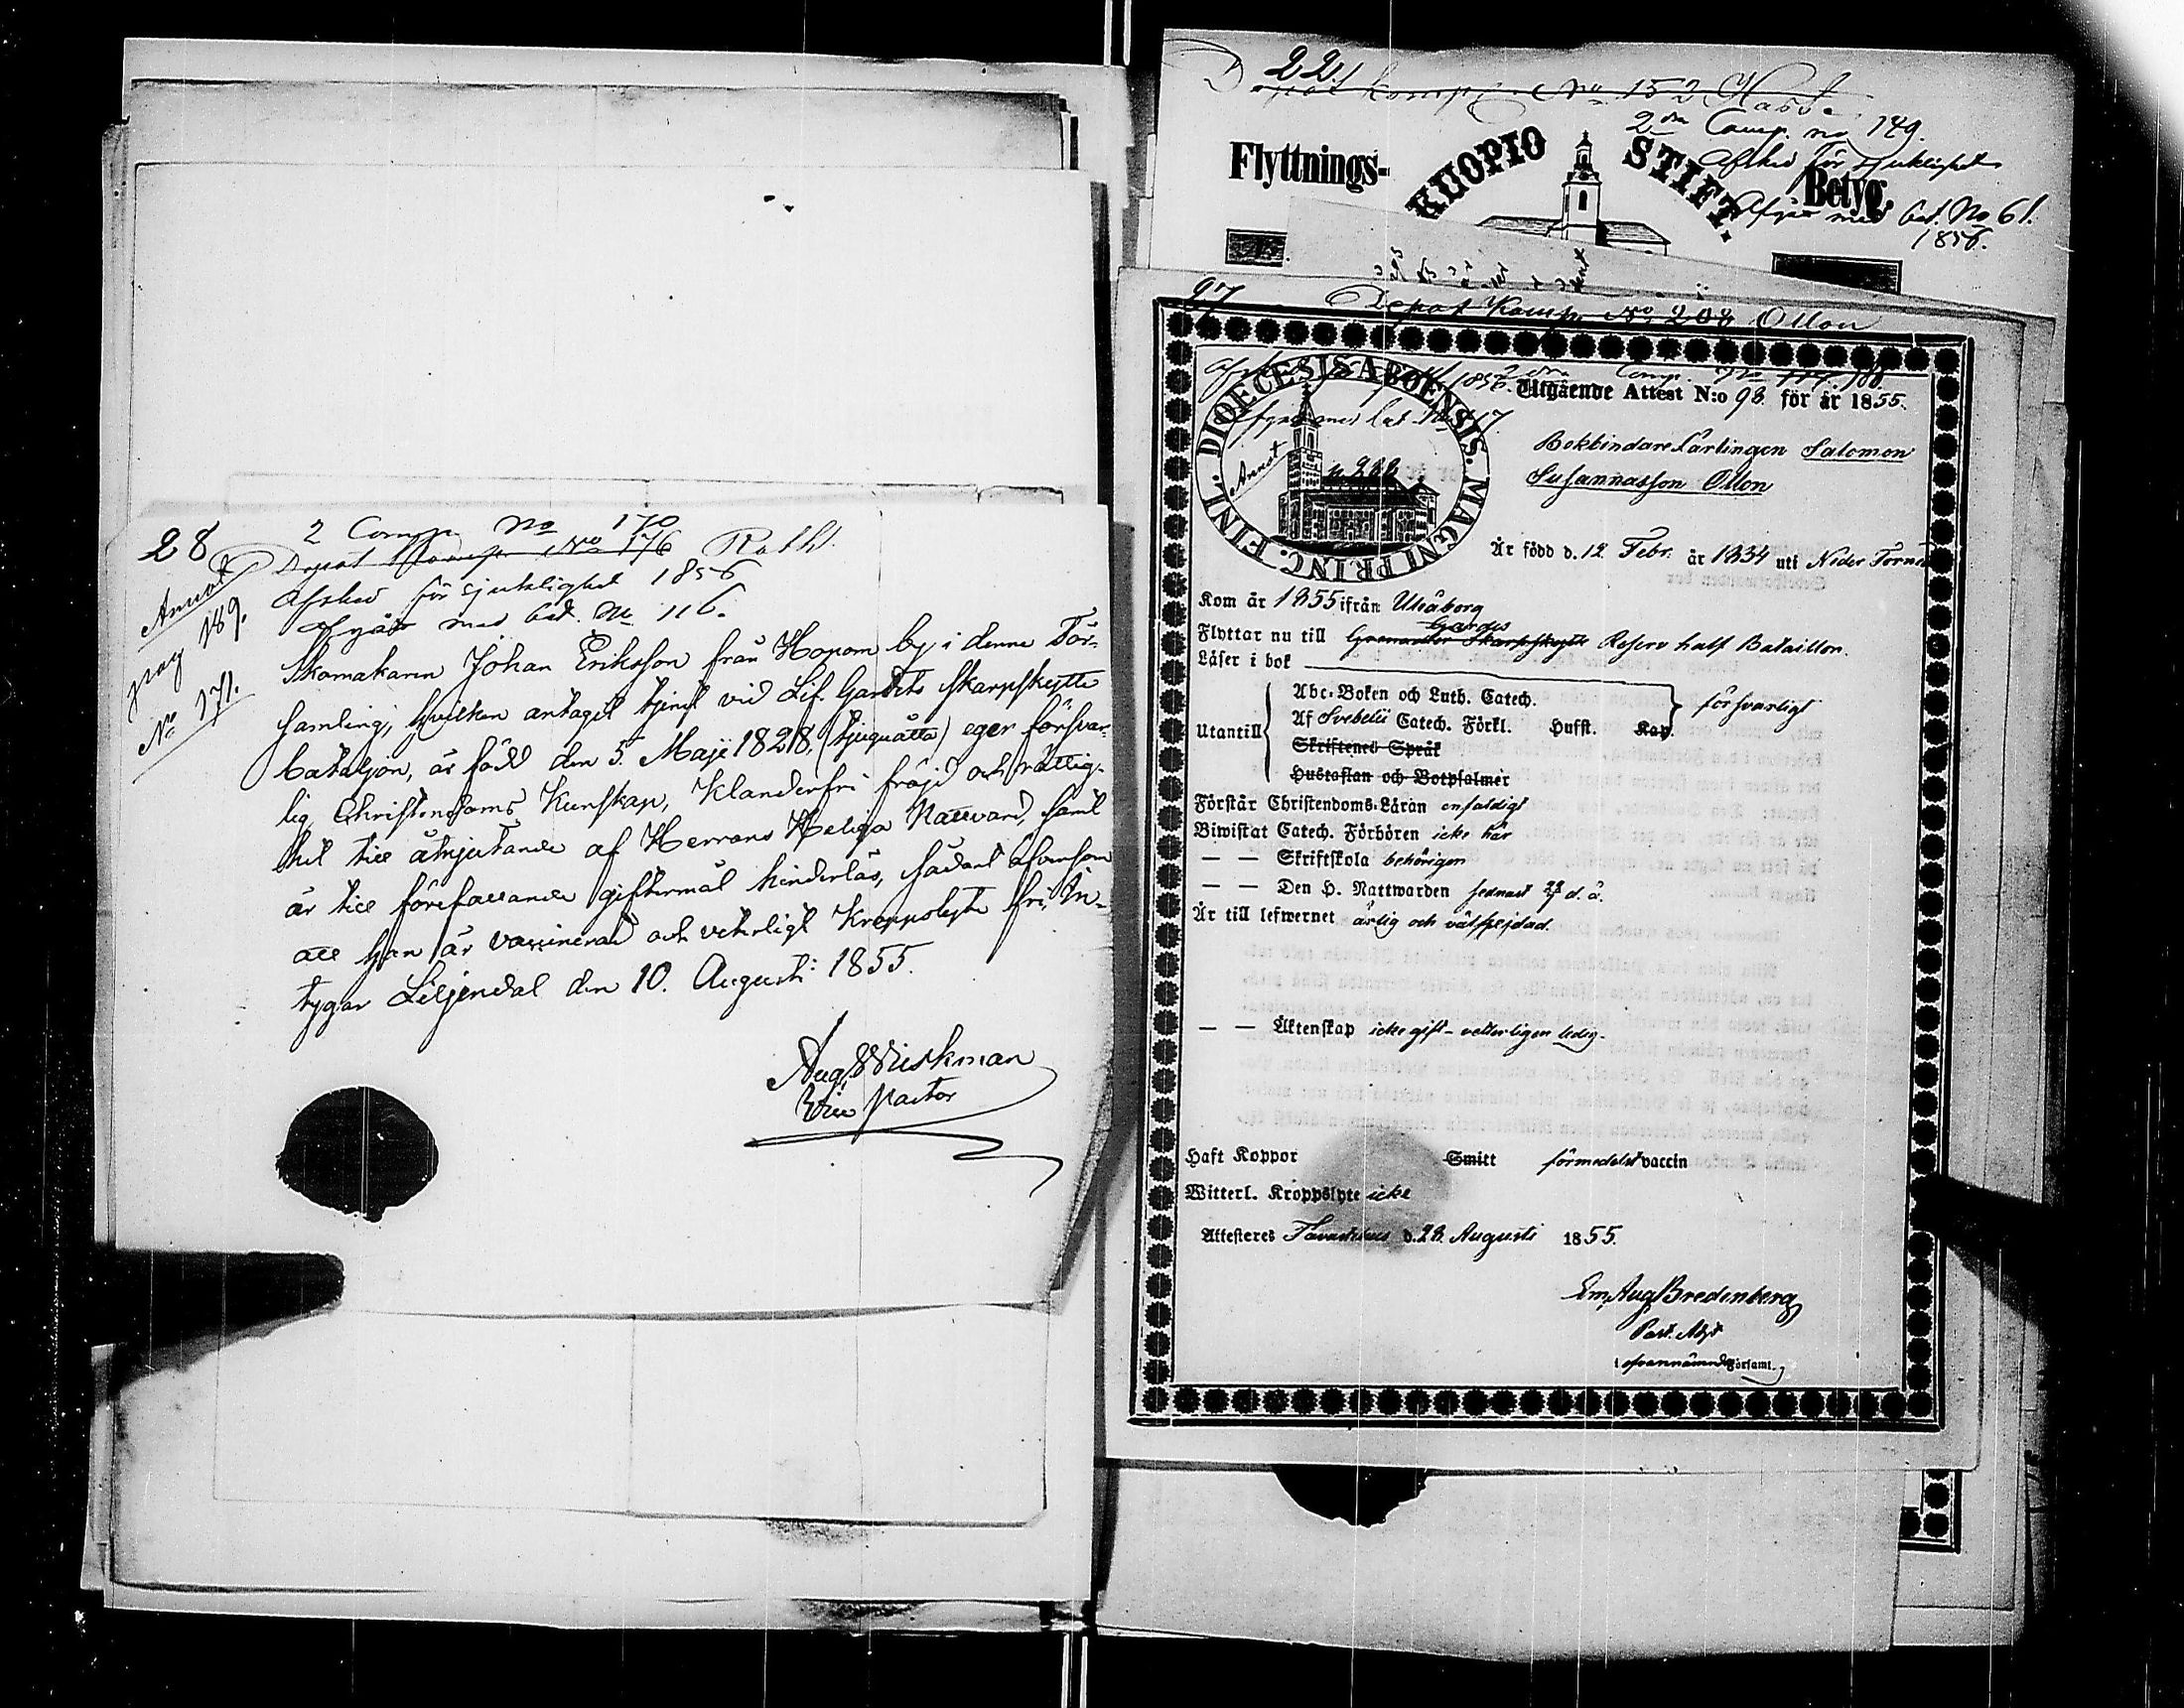 28
2 Comp. No 170
Depot Komp. No 176 Roth.
Afsked för sjuklighet 1856
Afgått med bet. No 116.
Annot
pag 189.
No 171.
Skomakaren Johan Eriksson från Hopom by i denne För-
samling, hvilken antagit tjenst vid Lif. Gardets Skarpskytte
bataljon, är född den 5. Maji 1828, (tjuguåtta) eger försvar-
lig Christendoms Kunskap, Klanderfri fräjd och rättig-
het till åtnjutande af Herrans Heliga Nattvard, samt
är till förefallande giftermål hinderlös, sådant äfvensom
att han är vaccinerad och veterligt Kroppslyte fri, in-
tygar Liljendal den 10. Augusti 1855.
Aug. Wiskman
Vice Pastor
22.
Depot Komp. No 152 Hasse
2dra Comp. no 149.
Afsked för sjuklighet
Afgått med bet. No 61.
1856.
Flyttnings- Betyg.
KUOPIO STIFT.
97 Depot Komp. No 208 Ollon
1856. 2dra Comp. No 188
Utgående Attest N:o 98 för år 1855.
DIOECESIS ABOENSIS. MAGNI PRINC. FINL.
Annot
Bokbindare Lärlingen Salomon
Susannasson Ollon
Är född d. 12 Febr. år 1834 uti Neder Torneå
Kom år 1855 ifrån Uleåborg
Gardes
Flyttar nu till Grenadier Skarpskytte Reserv half Bataillon.
Läser i bok
Utantill
Abc-Boken och Luth. Catech.
Af Svebelii Catech. Förkl. Husst. Kap.
Skriftenes Språk
Hustaflan och Botpsalmer
försvarligt
Förstår Christendoms-Läran enfaldigt
Biwistat Catech. Förhören icke här
— — Skriftskola behörigen
— — Den H. Nattwarden sednast d. å.
Är till lefwernet ärlig och välfrejdad.
— — Äktenskap icke gift - vetterligen ledig.
Haft Koppor Smitt förmedelst vaccin
Witterl. Kroppslyte icke
Attesteras Tavastehus d. 28. Augusti 1855.
Em. Aug. Bredenberg
Past. Adj.
i ofvannämnde Församl.